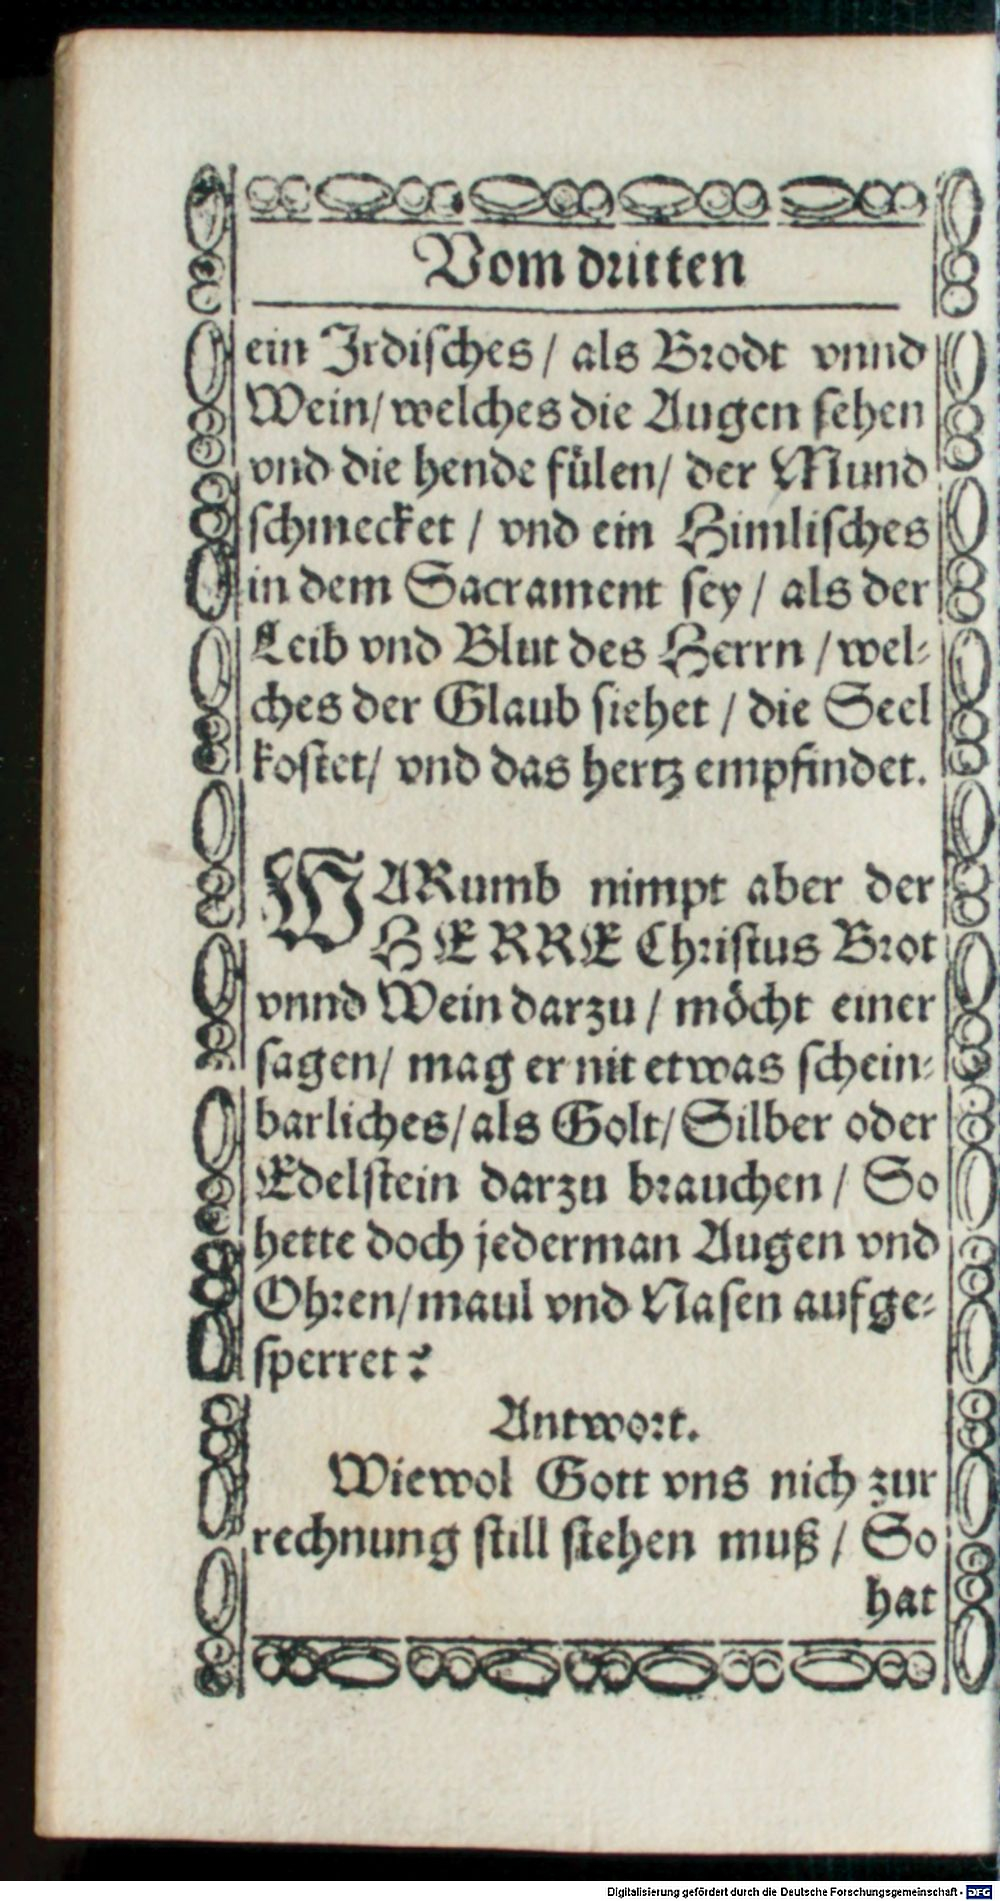 Vom dritten
ein Irdisches / als Brodt vnnd
Wein / welches die Augen sehen
vnd die hende fülen / der Mund
schmecket / vnd ein Himlisches
in dem Sacrament sey / als der
Leib vnd Blut des Herrn / wel-
ches der Glaub siehet / die Seel
kostet / vnd das hertz empfindet.
WARumb nimpt aber der
HERRE Christus Brot
vnnd Wein darzu / möcht einer
sagen / mag er nit etwas schein-
barliches / als Golt / Silber oder
Edelstein darzu brauchen / So
hette doch jederman Augen vnd
Ohren / maul vnd Nasen aufge-
sperret?
Antwort.
Wiewol Gott vns nich zur
rechnung still stehen muß / So
hat
Digitalisierung gefördert durch die Deutsche Forschungsgemeinschaft - DFG